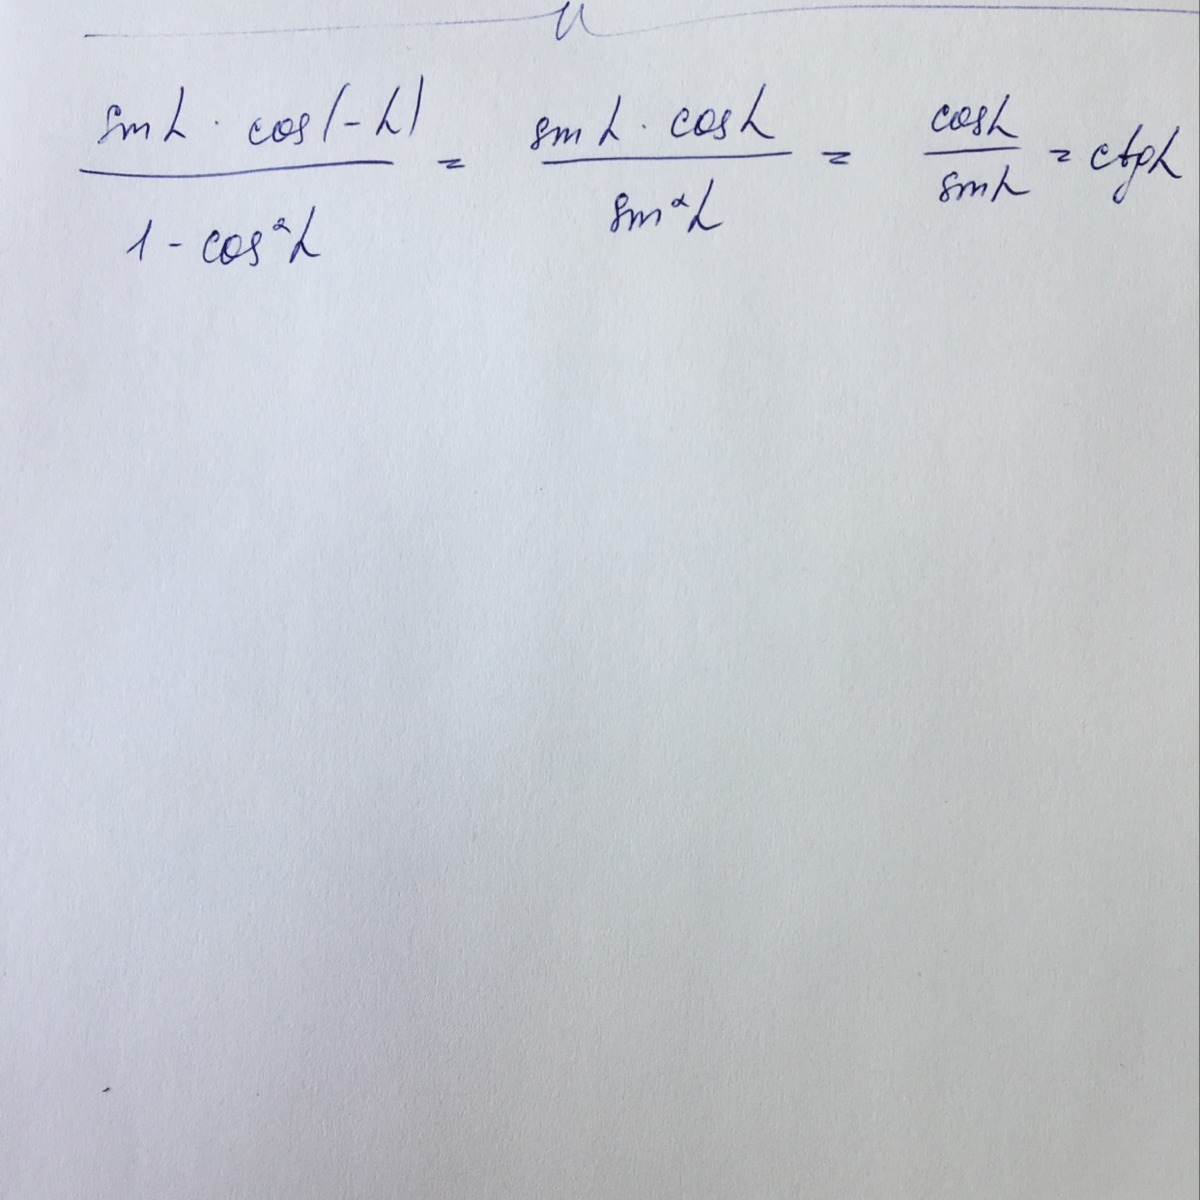 sin α · cos(-α) / 1 - cos²α = sin α · cos α / sin²α = cos α / sin α = ctg α